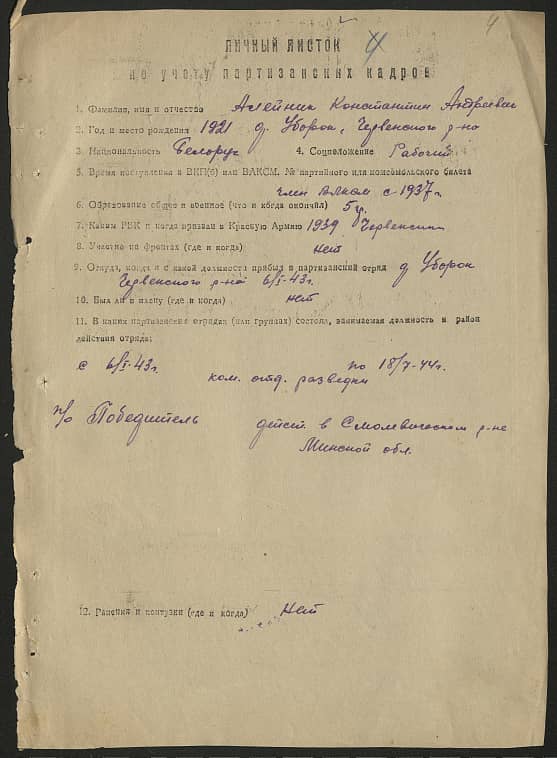 4
4
ЛИЧНЫЙ ЛИСТОК
по учету партизанских кадров
1. Фамилия, имя и отчество Алейник Константин Андреевич
2. Год и место рождения 1921 д. Уборок, Червенского р-на
3. Национальность Белорус 4. Соцположение Рабочий
5. Время поступления в ВКП(б) или ВЛКСМ. № партийного или комсомольского билета
член ВЛКСМ с 1937 г.
6. Образование общее и военное (что и когда окончил) 5 кл.
7. Каким РВК и когда призван в Красную Армию 1939 Червенским
8. Участие на фронтах (где и когда) нет
9. Откуда, когда и с какой должности прибыл в партизанский отряд д. Уборок
Червенского р-на 6/I-43г.
10. Был ли в плену (где и когда) нет
11. В каких партизанских отрядах (или группах) состоял, занимаемая должность и район
действия отряда:
с 6/I-43г. по 18/7-44г.
ком. отд. разведки
п/о Победитель дейст. в Смолевичском р-не
Минской обл.
12. Ранения и контузии (где и когда) Нет